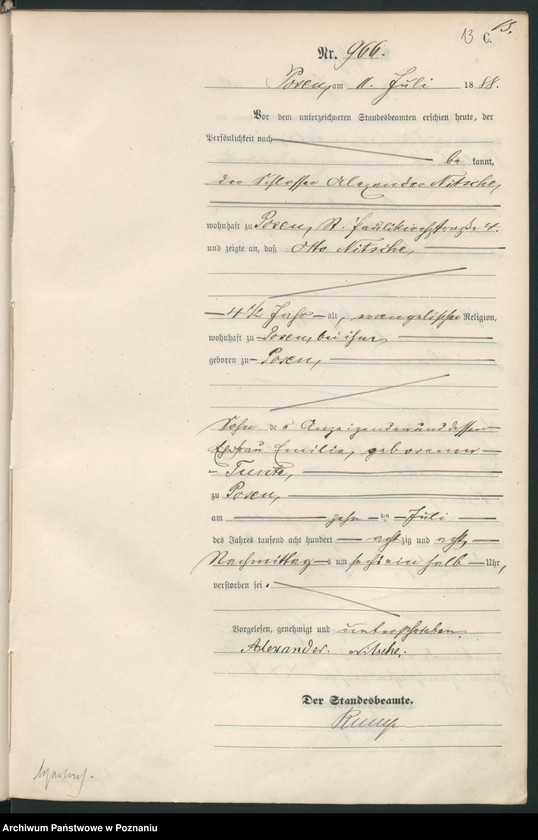 13 C. 13.
Nr. 966.
Posen, am 11. Juli 1888.
Vor dem unterzeichneten Standesbeamten erschien heute, der
Persönlichkeit nach
be kannt,
der Schlosser Alexander Nitsche,
wohnhaft zu Posen, St. Paulikirchstraße 4.
und zeigte an, daß Otto Nitsche,
4 1/2 Jahr alt, evangelischer Religion,
wohnhaft zu Posen, bei ihm
geboren zu Posen,
Sohn des Anzeigenden und dessen
Ehefrau Emilie, geborenen
zu Posen,
am zehn ten Juli
des Jahres tausend acht hundert acht zig und acht,
Nachmittags um sechs ein halb Uhr,
verstorben sei.
Vorgelesen, genehmigt und unterschrieben
Alexander Nitsche.
Der Standesbeamte.
Archiwum Państwowe w Poznaniu